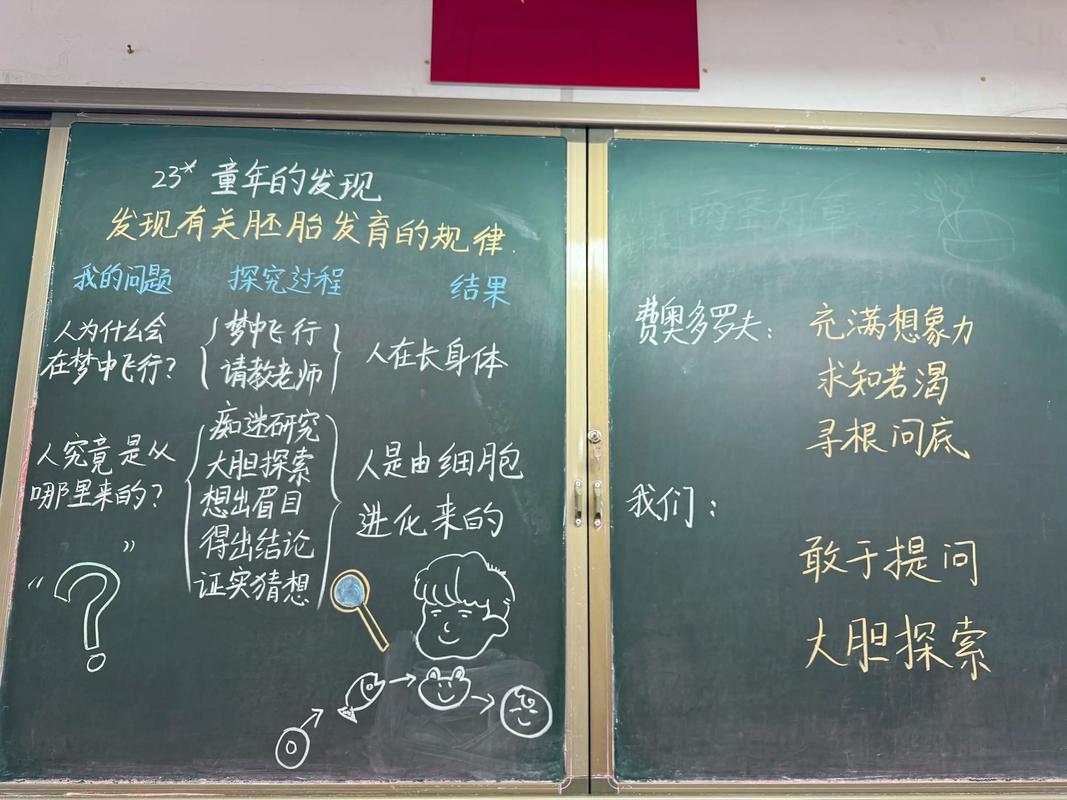 23* 童年的发现
发现有关胚胎发育的规律.
我的问题 探究过程 结果
人为什么会
在梦中飞行?
梦中飞行
请教老师
人在长身体
人究竟是从
哪里来的?
痴迷研究
大胆探索
想出眉目
得出结论
证实猜想
人是由细胞
进化来的
“ ? ”
费奥多罗夫: 充满想象力
求知若渴
寻根问底
我们:
敢于提问
大胆探索